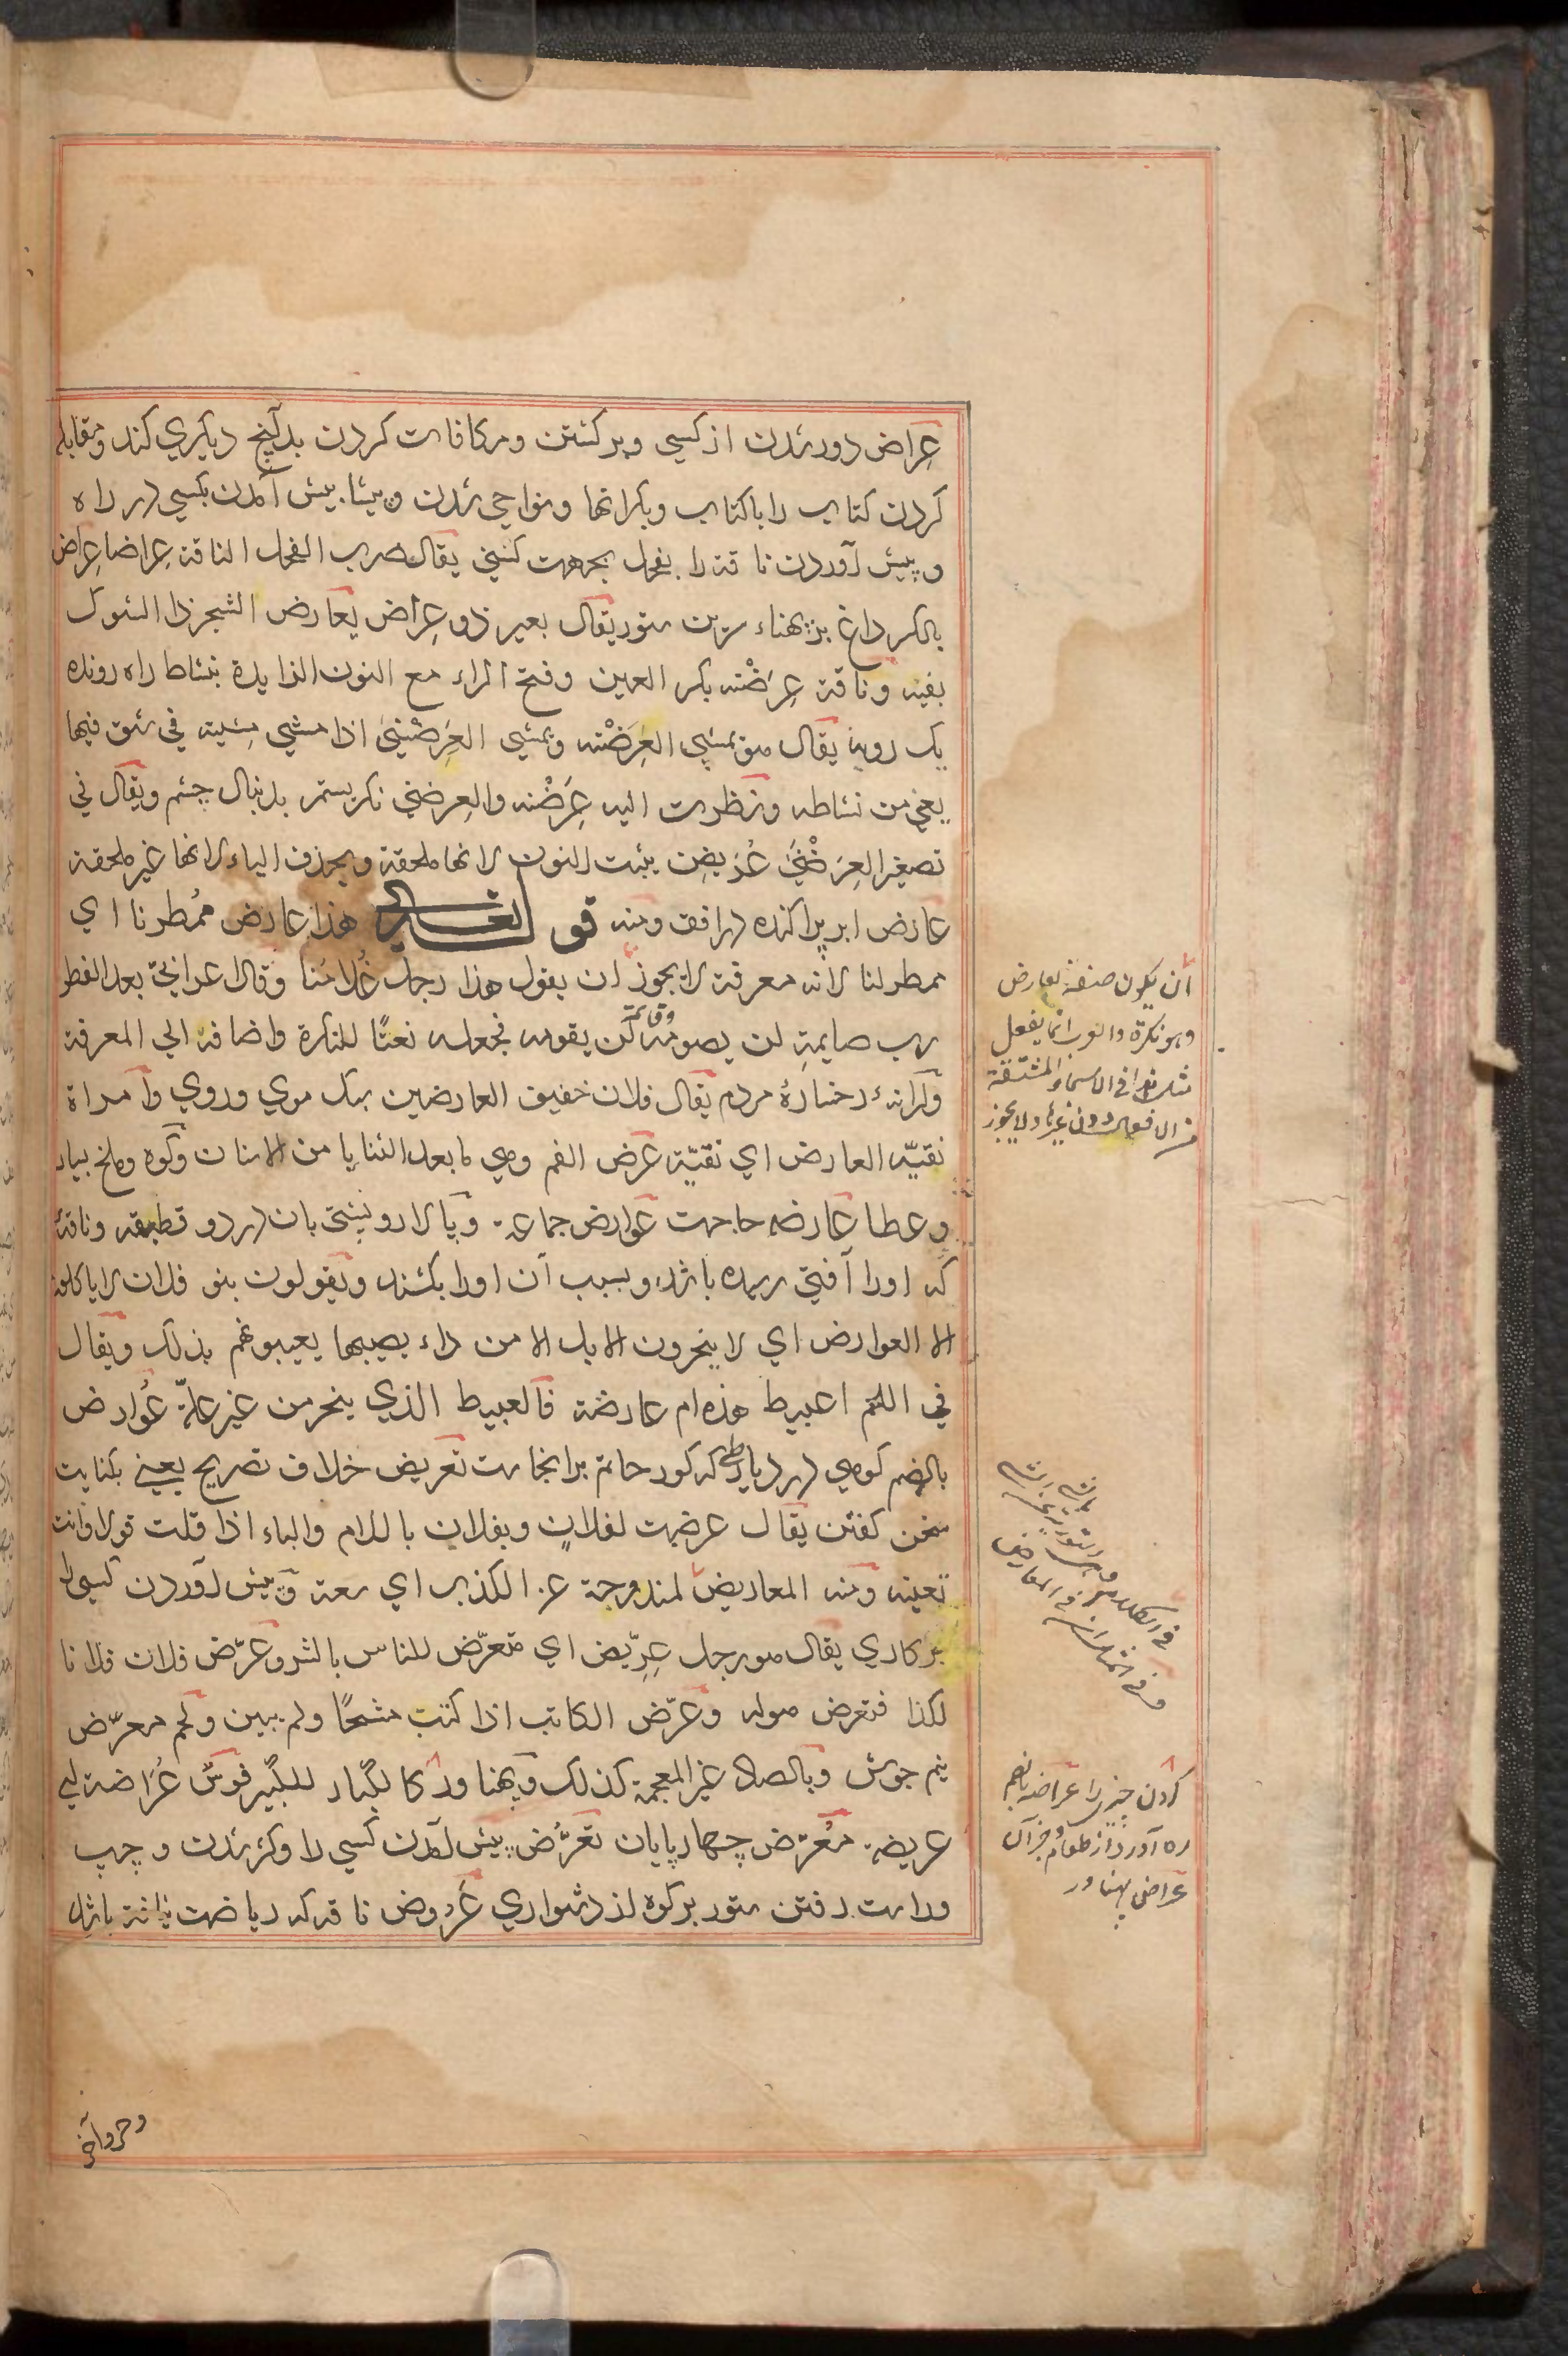 عِراض دور شدن از کسی و برگشتن و مکافات کردن بدآنچ دیگری کند و مقابله
کردن کتاب را با کتاب و بکرانها و نواحی شدن و پیشا پیش آمدن بکسی در راه
و پیش آوردن ناقه را بفحل بجهت کشنی یقال ضرب الفحل الناقة عِراضا عِراض
بالکسر داغ بر پهناء سرین ستور یقال بعیر ذو عِراض یعارض الشجر ذا الشوک
بفیه و ناقة عِرَضْنه بکسر العین و فتح الراء مع النون الزایدة بنشاط راه رونده
یک رویه یقال هو یمشی العِرَضْنه و یمشی العِرَضْنیٰ اذا مشی مشیة فی شق فیها
یعنی من نشاطه و نظرت الیه عِرَضْنه و العِرضنی نکریستم بدنبال چشم و یقال فی
تصغیر العِرَضْنیٰ عُرَیضِن یثبت النون لانها ملحقة و یحذف الیاء لانها غیر ملحقة
عارض ابر پراکنده در افق و منه قوله تعالی هذا عارض ممُطرنا ای
ممطر لنا لانه معرفة لا یجوز ان یقول هذا رجل غُلامُنا و قال اعرابیّ بعد الفطر
رب صایمةِ لن یصومه و قائمة لن یقومه فجعله نعتًا للنکرة و اضافة الی المعرفة
و کرانهٔ رخسارهٔ مردم یقال فلان خفیف العارضین سبک موی و روی و امراة
نقیّه العارض ای نقیّة عَرض الفم و هی ما بعد الثنایا من الاسنان و کوه و ملخ بسیار
و عطا عارضه حاجت عوارض جماعة و بالا رو پشتی بان در دو و ناقهٔ
که او را آفتی رسیده باشد و بسبب آن او را بکشند و یقولون بنو فلان لا یاکلون
الا العوارض ای لا ینحرون الابل الا من داء یصیبها یعیبونهم بذلک و یقال
فی اللحم اعبیط هذه ام عارضة فالعبیط الذی ینحر من غیر علّة عُوارض
بالضم کوهی در دیار طی که کور حاتم برانجاست تعریض خلاف تصریح یعنی بکنایت
سخن کفتن یقال عرضت لفلانٍ و بفلان باللام و الباء اذا قلت قولا و انت
تعینه و منه المعاریض لمندوحة عن الکذب ای سعة و پیش آوردن کسی را
بر کاری یقال هو رجل عِرِّیض ای متعرّض للناس بالشر و عَرَّض فلان فلانا
لکذا فتعرض هو له و عَرّض الکاتب اذا کتب مثبّجًا و لم یبین و لحم معرّض
نیم جوش و بالصاد غیر المعجمة کذلک و پهناور کالکُبار للکبیر قوس عُراضة ای
عریضه مُعَرّض چهارپایان تَعَرُّض پیش آمدن کسی را و کژ شدن و چپ
و راست رفتن ستور بر کوه از دشواری عَرُوض ناقه که ریاضت نیافته باشد
أن یکون صفة لعارض
و هو نکرة و العرب انما یفعل
مثل هذا فی الاسماء المشتقة
من الافعال دون غیرها و لا یجوز
فی المعاریض
کردن چیزی را عُراضه بالضم
ره آورد از طعام و جز آن
عُراض پهناور